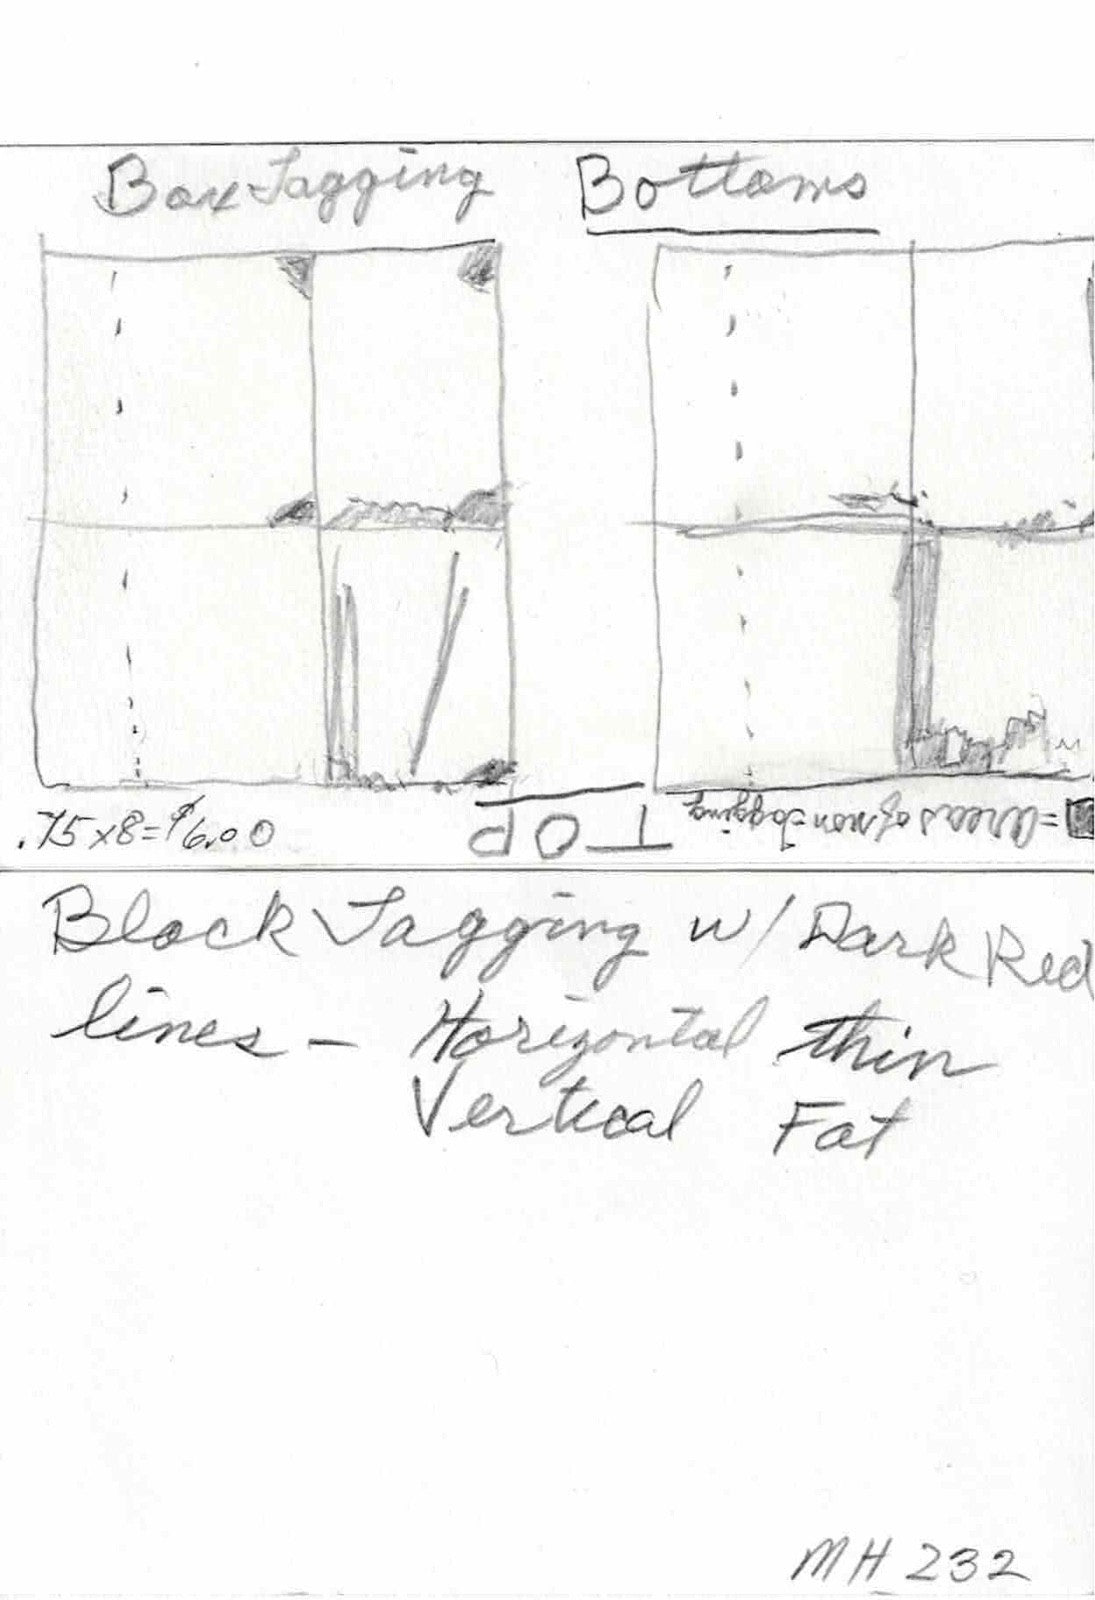 Box Tagging Bottoms
.75 x 8 = $6.00
TOP
= Areas of non-Tagging
Block Tagging w/ Dark Red
lines - Horizontal thin
Vertical Fat
MH 232